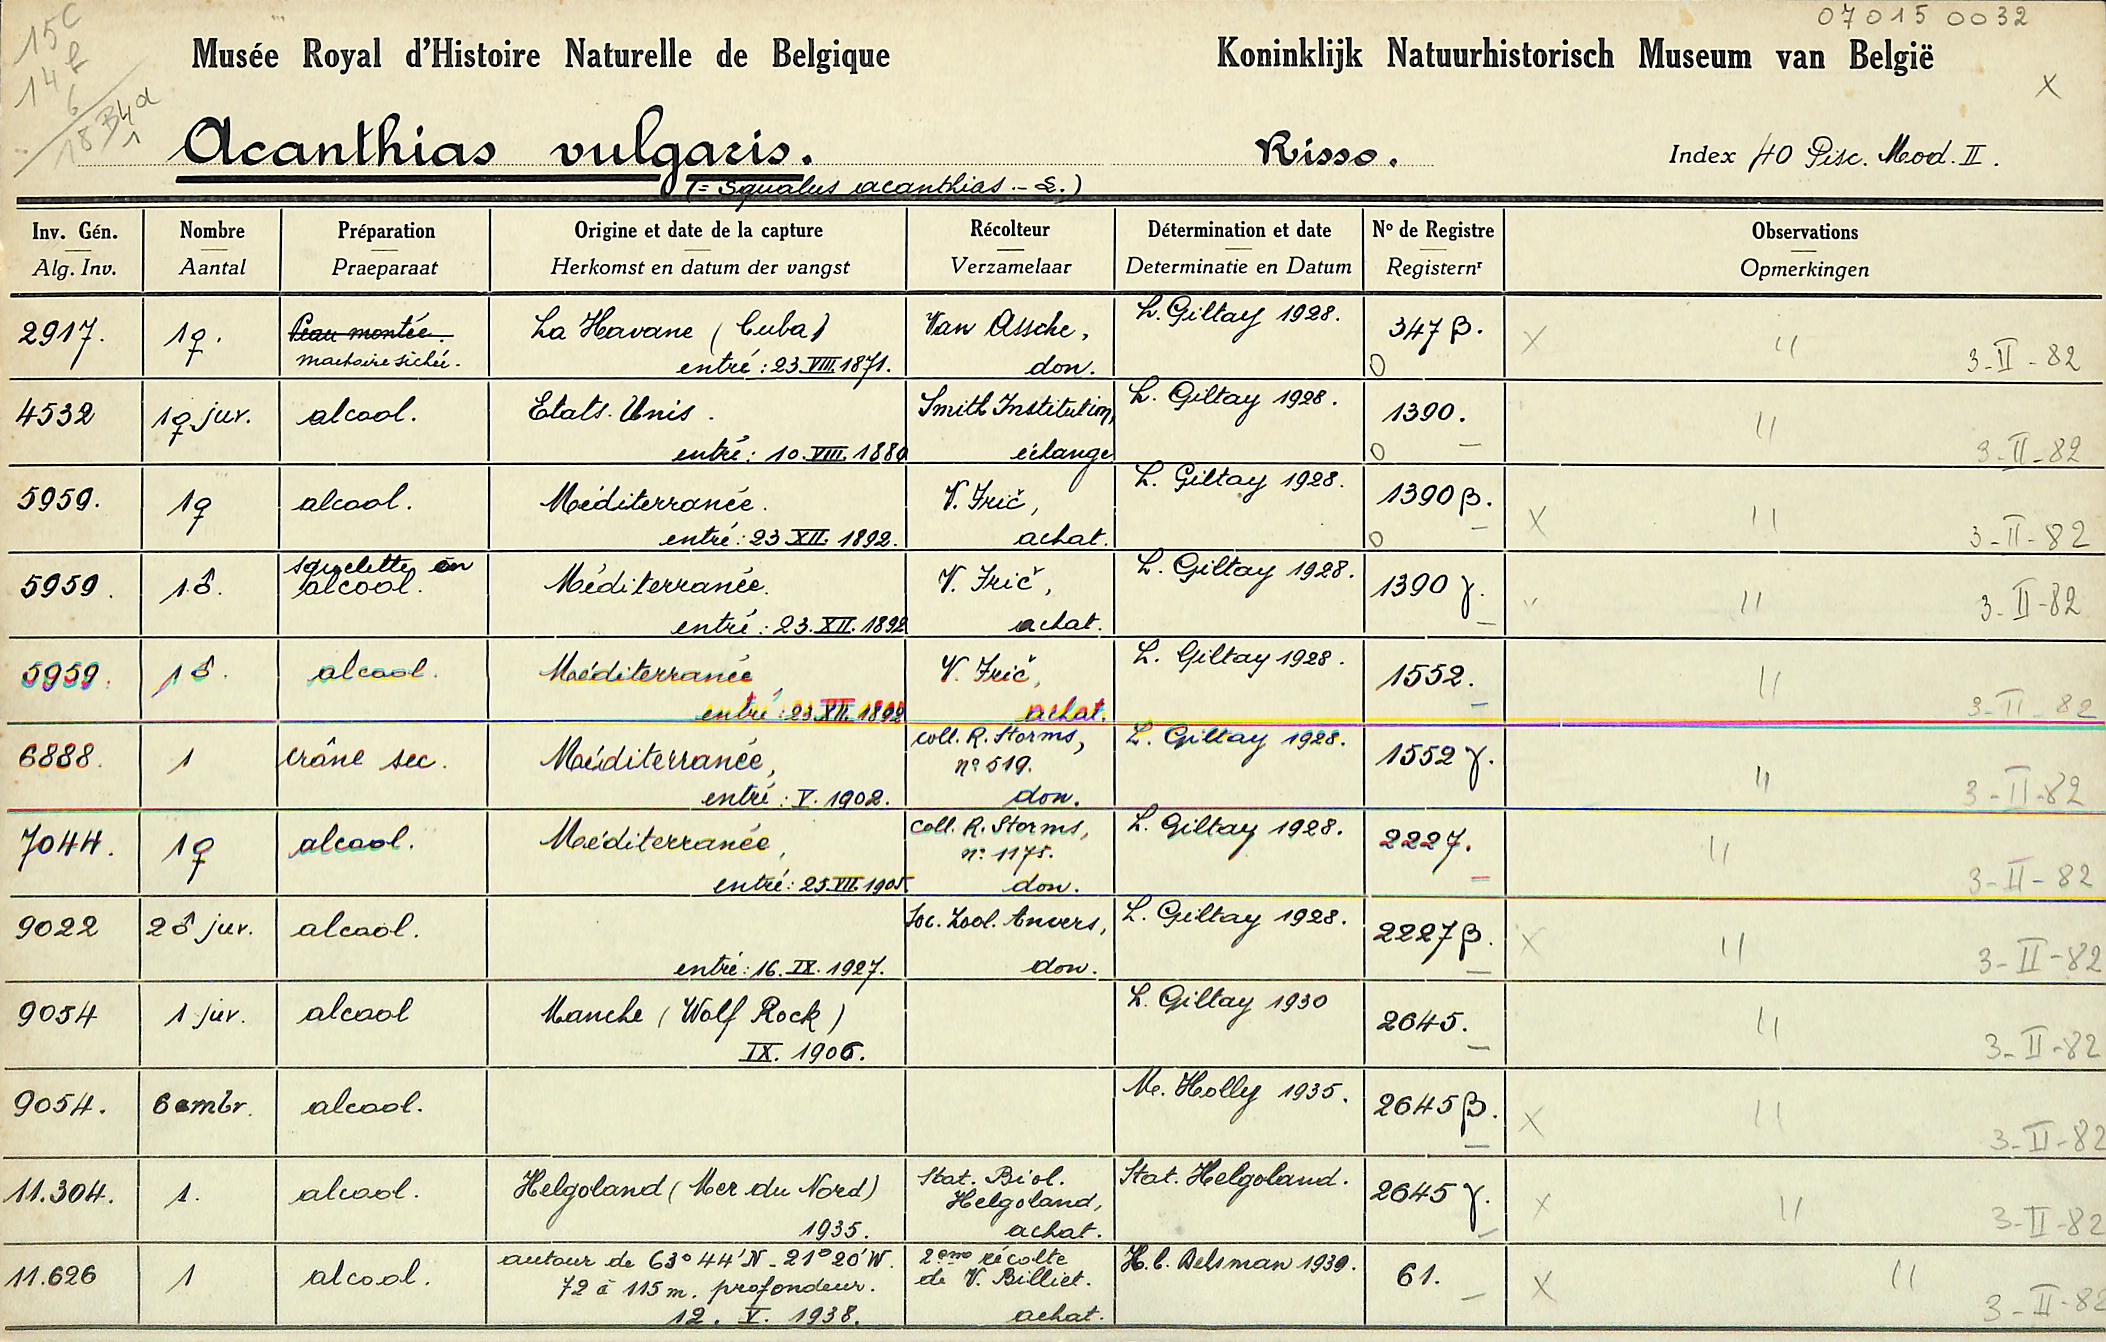 07015 0032
15C
14
6
18 B4a
1
Musée Royal d'Histoire Naturelle de Belgique Koninklijk Natuurhistorisch Museum van België
X
Acanthias vulgaris. Risso. Index 40 Pisc. Mod. II.
(= Squalus acanthias - L.)
Inv. Gén. Nombre Préparation Origine et date de la capture Récolteur Détermination et date No de Registre Observations
Alg. Inv. Aantal Praeparaat Herkomst en datum der vangst Verzamelaar Determinatie en Datum Registernr Opmerkingen
2917. 1♀. Peau montée. La Havane (Cuba) Van Assche, L. Giltay 1928. 347 β. X "
machoire sèchée. entré : 23.VIII.1871. don. O 3-II-82
4532 1♀ juv. alcool. Etats-Unis. Smith Institution, L. Giltay 1928. 1390. "
entré : 10.VIII.1880 échange O 3-II-82
5959. 1♀ alcool. Méditerranée. V. Frič, L. Giltay 1928. 1390 β. X "
entré : 23.XII.1892. achat. O 3-II-82
squelette en
5959. 1♂. alcool. Méditerranée. V. Frič, L. Giltay 1928. 1390 γ. " "
entré : 23.XII.1892 achat. 3-II-82
5959. 1♂. alcool. Méditerranée V. Frič, L. Giltay 1928. 1552. "
entré : 23.XII.1892 achat. 3-II-82
coll. R. Storms, L. Giltay 1928.
6888. 1 crâne sec. Méditerranée, no 519. 1552 γ. "
entré : V. 1902. don. 3-II-82
coll. R. Storms, L. Giltay 1928.
7044. 1♀ alcool. Méditerranée, no 1175. 2227. "
entré : 25.VII.1905 don. 3-II-82
9022 2♂ juv. alcool. Soc. Zool. Anvers, L. Giltay 1928. 2227 β. X "
entré : 16.IX.1927. don. 3-II-82
9054 1 juv. alcool Manche (Wolf Rock) L. Giltay 1930 2645. "
IX. 1906. 3-II-82
9054. 6 embr. alcool. M. Holly 1935. 2645 β. X "
3-II-82
11.304. 1. alcool. Helgoland (Mer du Nord) Stat. Biol. Stat. Helgoland. 2645 γ. X "
Helgoland,
1935. achat. 3-II-82
autour de 63°44'N - 21°20'W. 2eme récolte H.C. Delsman 1939.
11.626 1 alcool. 72 à 115 m. profondeur. de V. Billiet. 61. X "
12. V. 1938. achat. 3-II-82